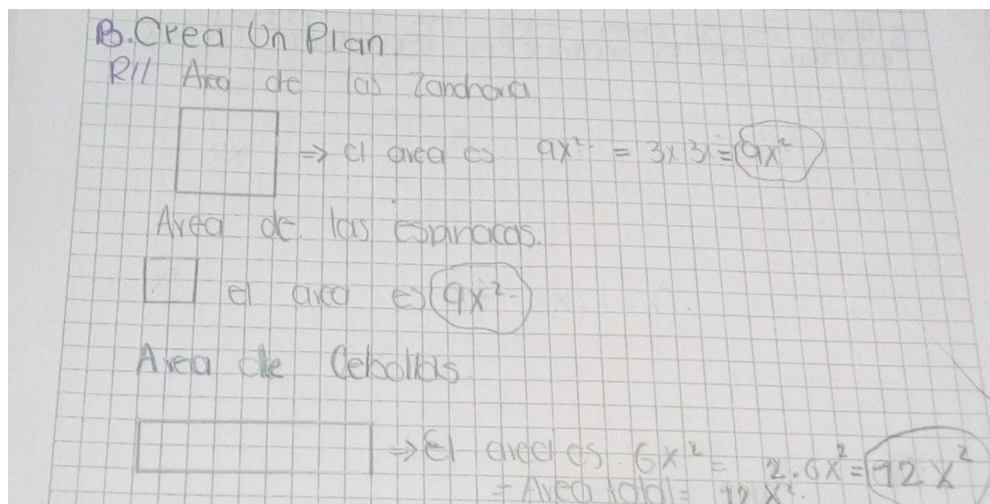 B. Crea Un Plan
R// Area de las Zanahoria
⇒ el area es 9x² = 3x·3x = 9x²
Area de las espinacas.
el area es 9x²
Area de Cebollas
→ El area es 6x² = 2·6x² = 12x²
= Area total = 12x